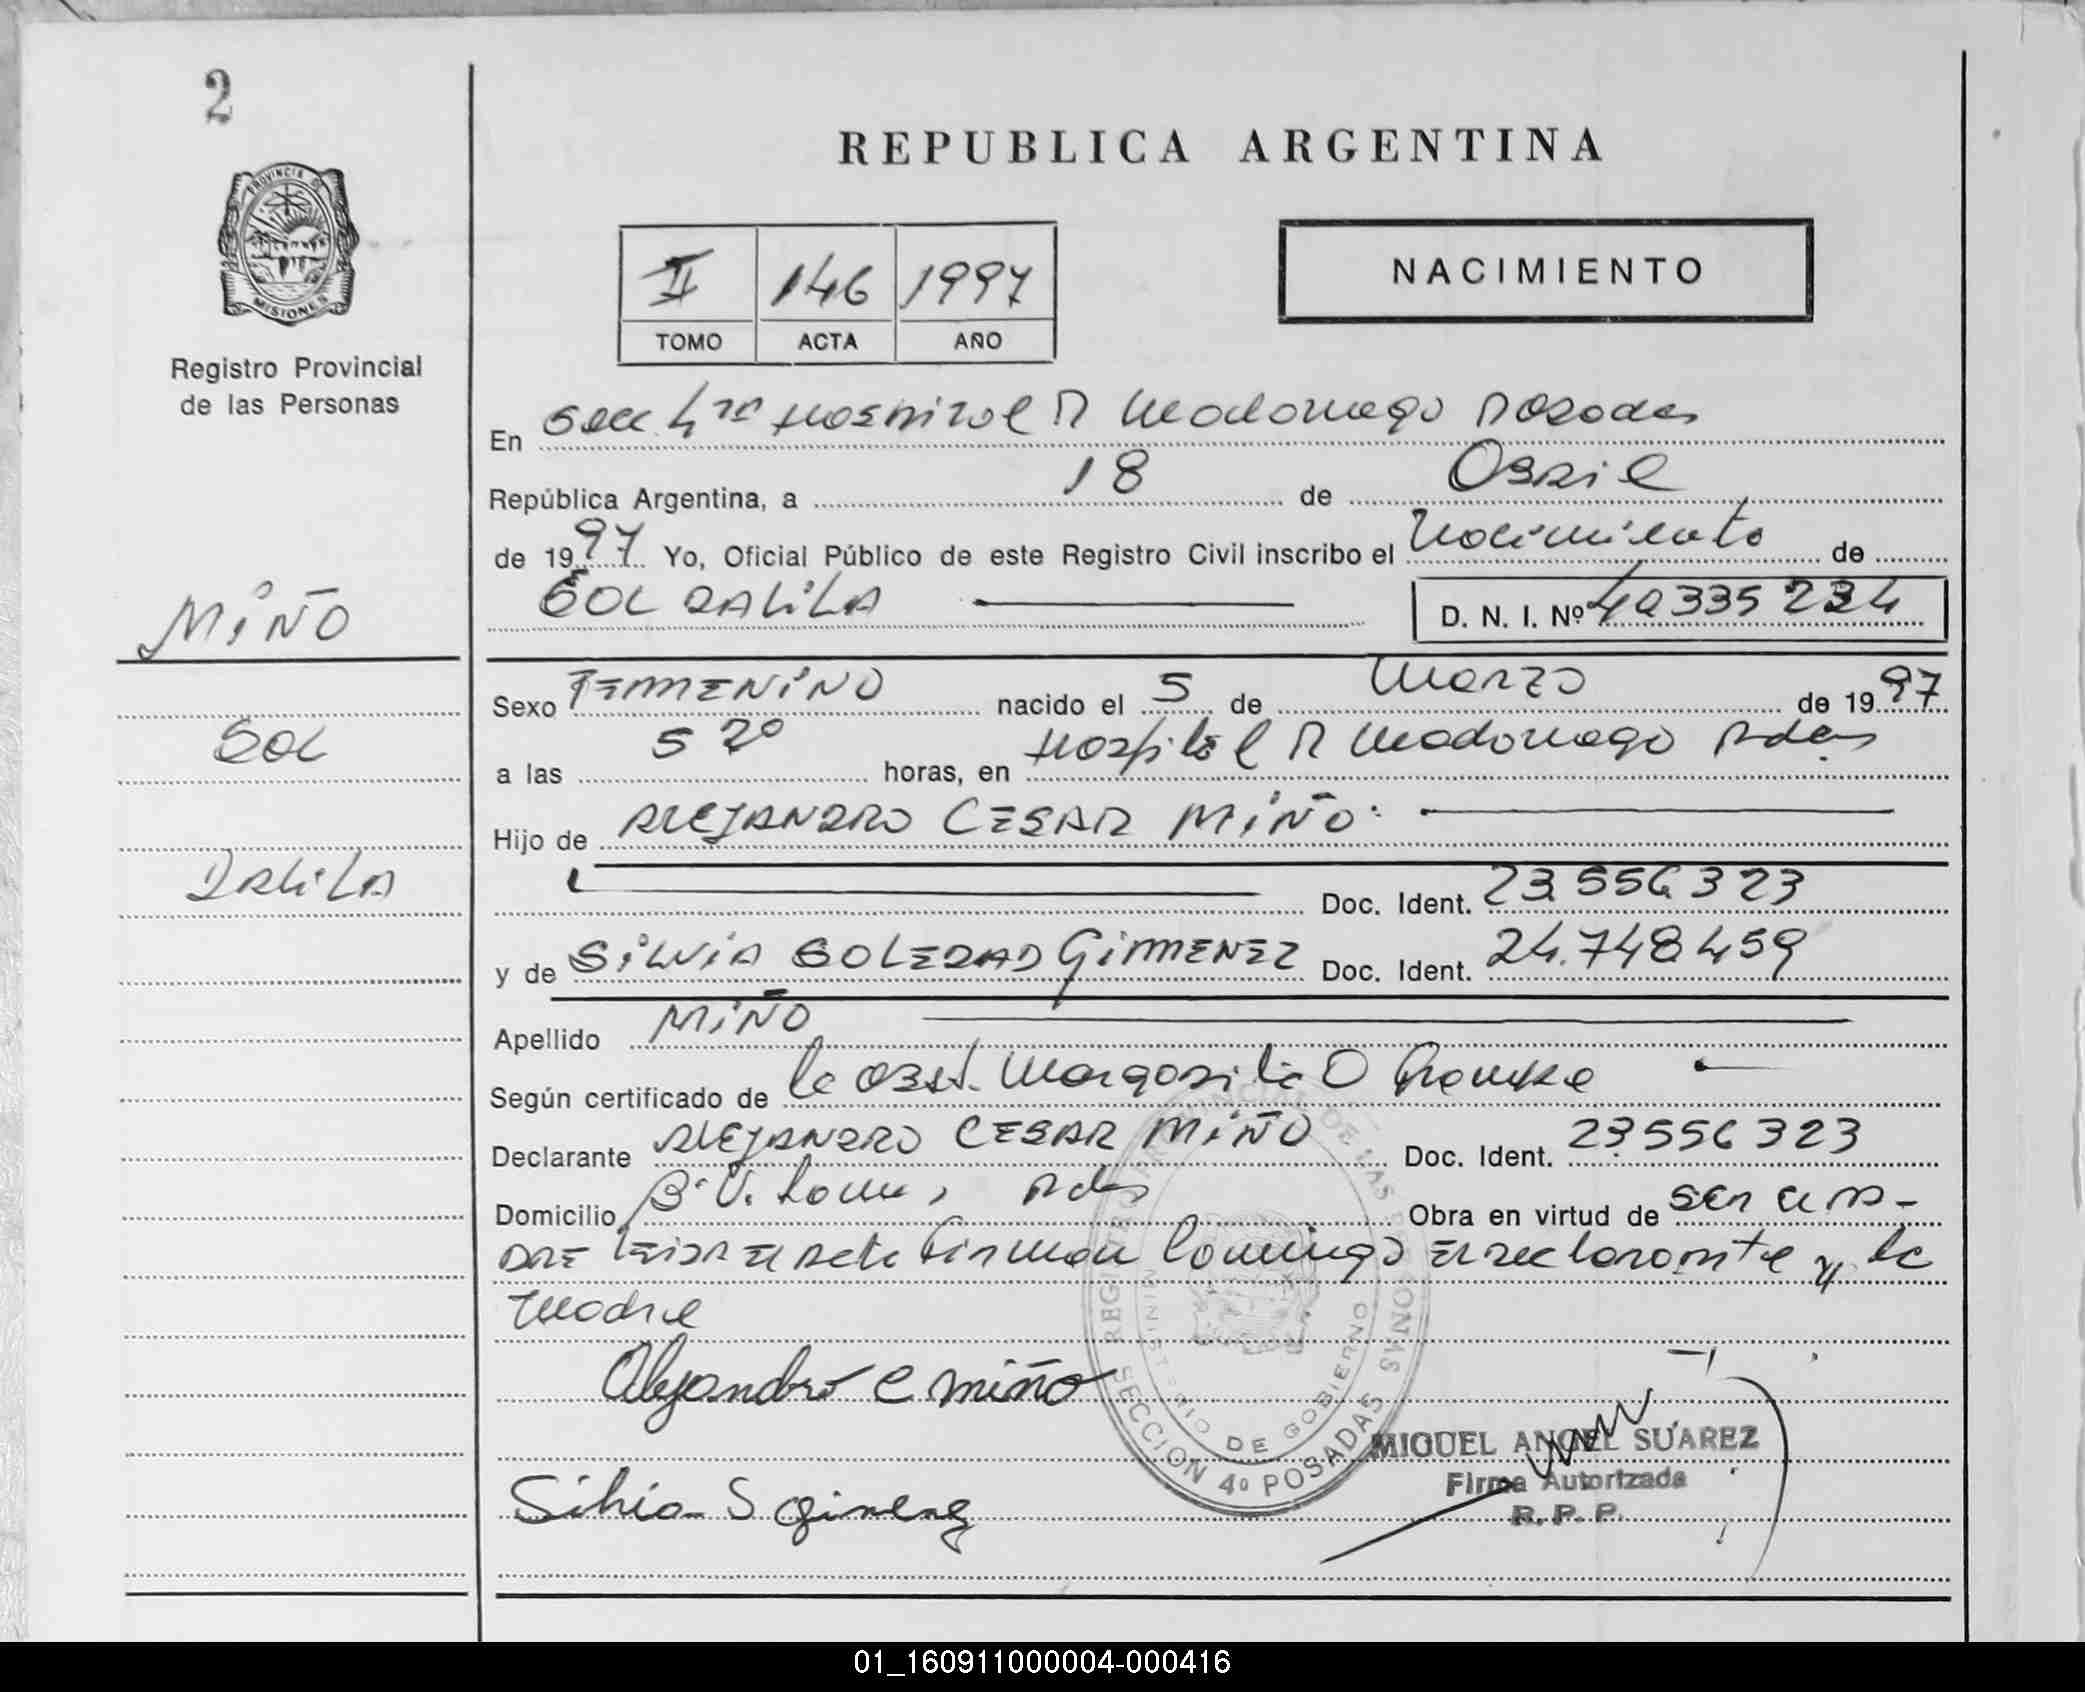 2
REPUBLICA ARGENTINA
PROVINCIA DE
MISIONES
Registro Provincial
de las Personas
II 146 1997
TOMO ACTA AÑO
NACIMIENTO
En Secc 4ta Hospital R Madariaga Posadas
República Argentina, a 18 de Abril
de 1997 Yo, Oficial Público de este Registro Civil inscribo el Nacimiento de
SOL DALILA D. N. I. Nº 40335234
MIÑO
SOL
DALILA
Sexo FEMENINO nacido el 5 de Marzo de 1997
a las 5 20 horas, en Hospital R Madariaga Pdas
Hijo de ALEJANDRO CESAR MIÑO
Doc. Ident. 23.556.323
y de SILVIA SOLEDAD GIMENEZ Doc. Ident. 24.748.459
Apellido MIÑO
Según certificado de la Obst. Margarita O
Declarante ALEJANDRO CESAR MIÑO Doc. Ident. 23.556.323
Domicilio Bº V. , Pdas Obra en virtud de ser el PA-
DRE Leida el acta firman conmigo El declarante y la
Madre
Alejandro C Miño
Silvia S Gimenez
REGISTRO PROVINCIAL DE LAS PERSONAS
MINISTERIO DE GOBIERNO
SECCION 4º POSADAS
MIGUEL ANGEL SUAREZ
Firma Autorizada
R. P. P.
01_160911000004-000416